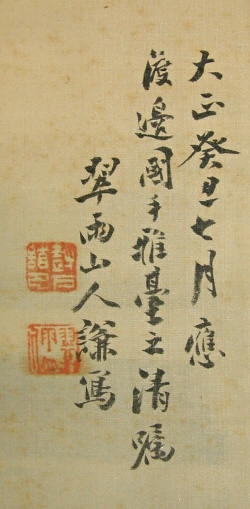 大正癸丑七月應
渡邊國手雅臺之清嘱
翠雨山人謙寫